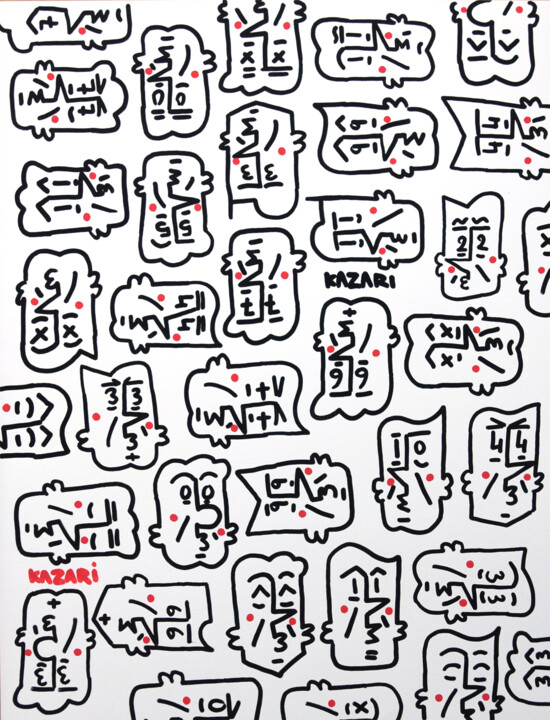 KAZARI
KAZARI